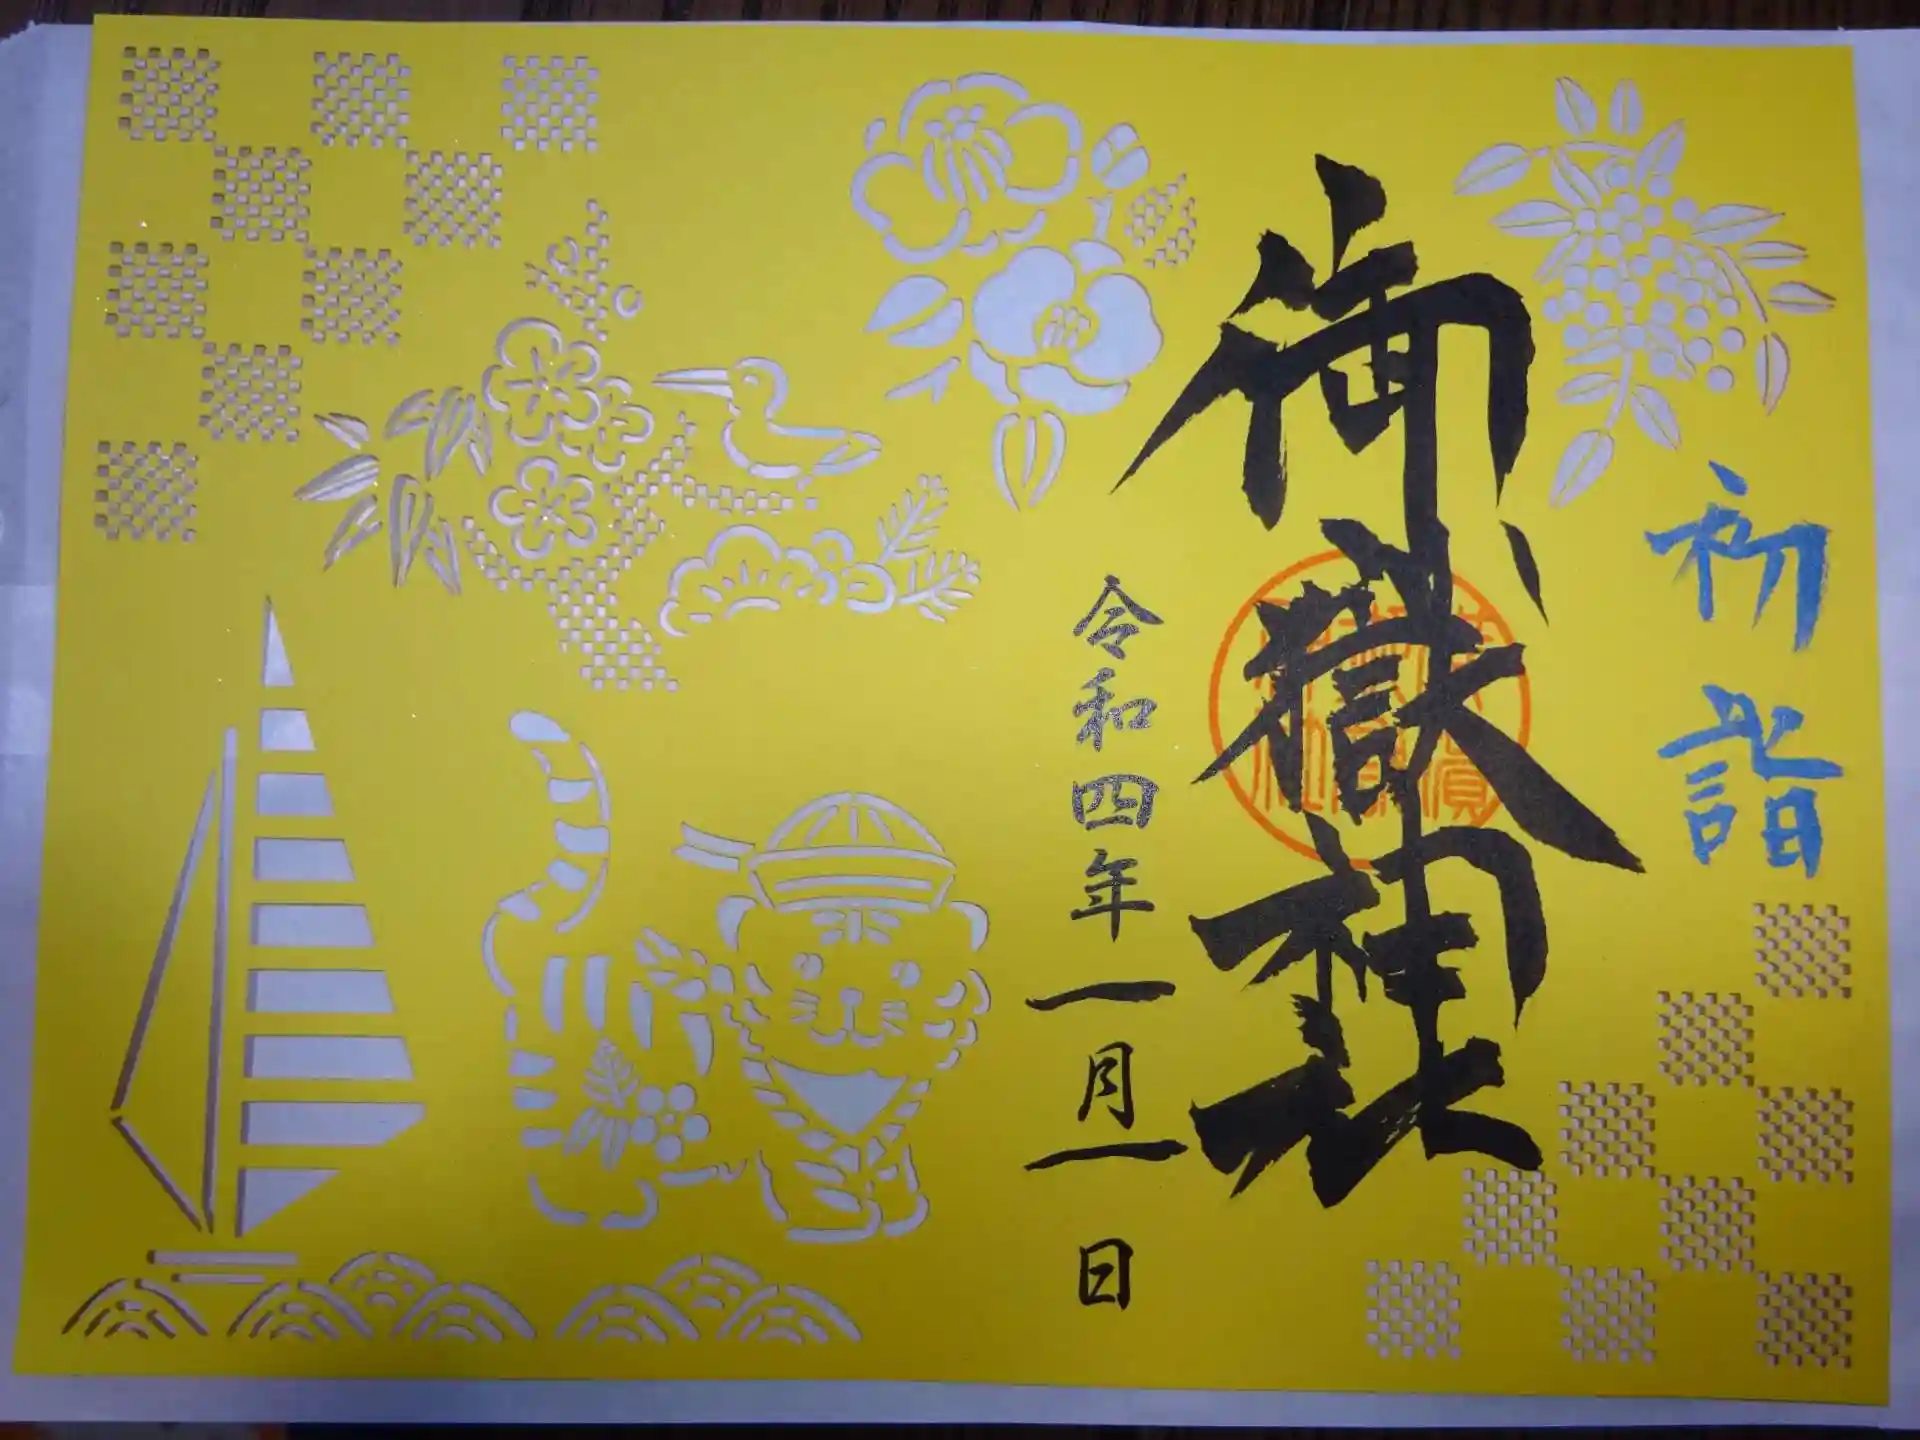 初詣
御嶽神社
令和四年一月一日